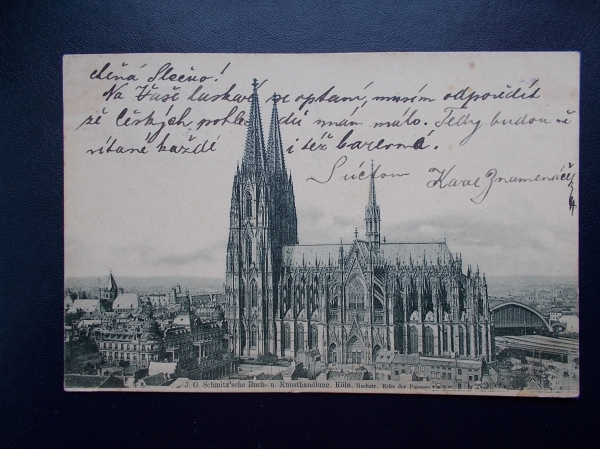 ctěná Slečno!
Na Vaše laskavé se optaní, musím odpovědít
že Českých pohledů mám málo. Tedy budou
vítané každé i též barevná.
S úctou Karel
J. G. Schmitz'sche Buch- u. Kunsthandlung, Köln, Hochstr. Ecke der